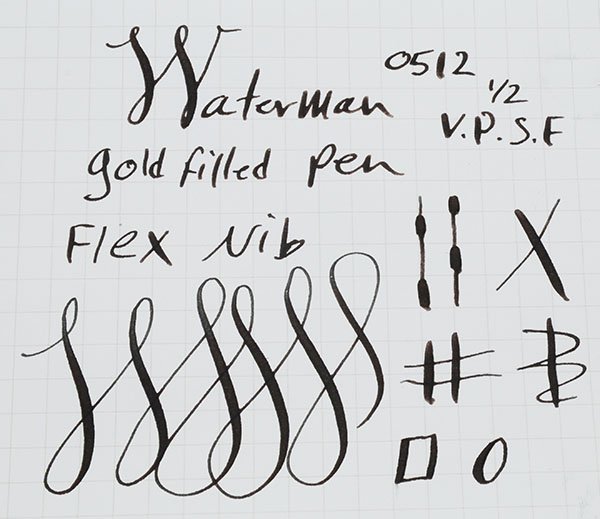 Waterman
0512
1/2
V.P.S.F
gold filled pen
Flex Nib